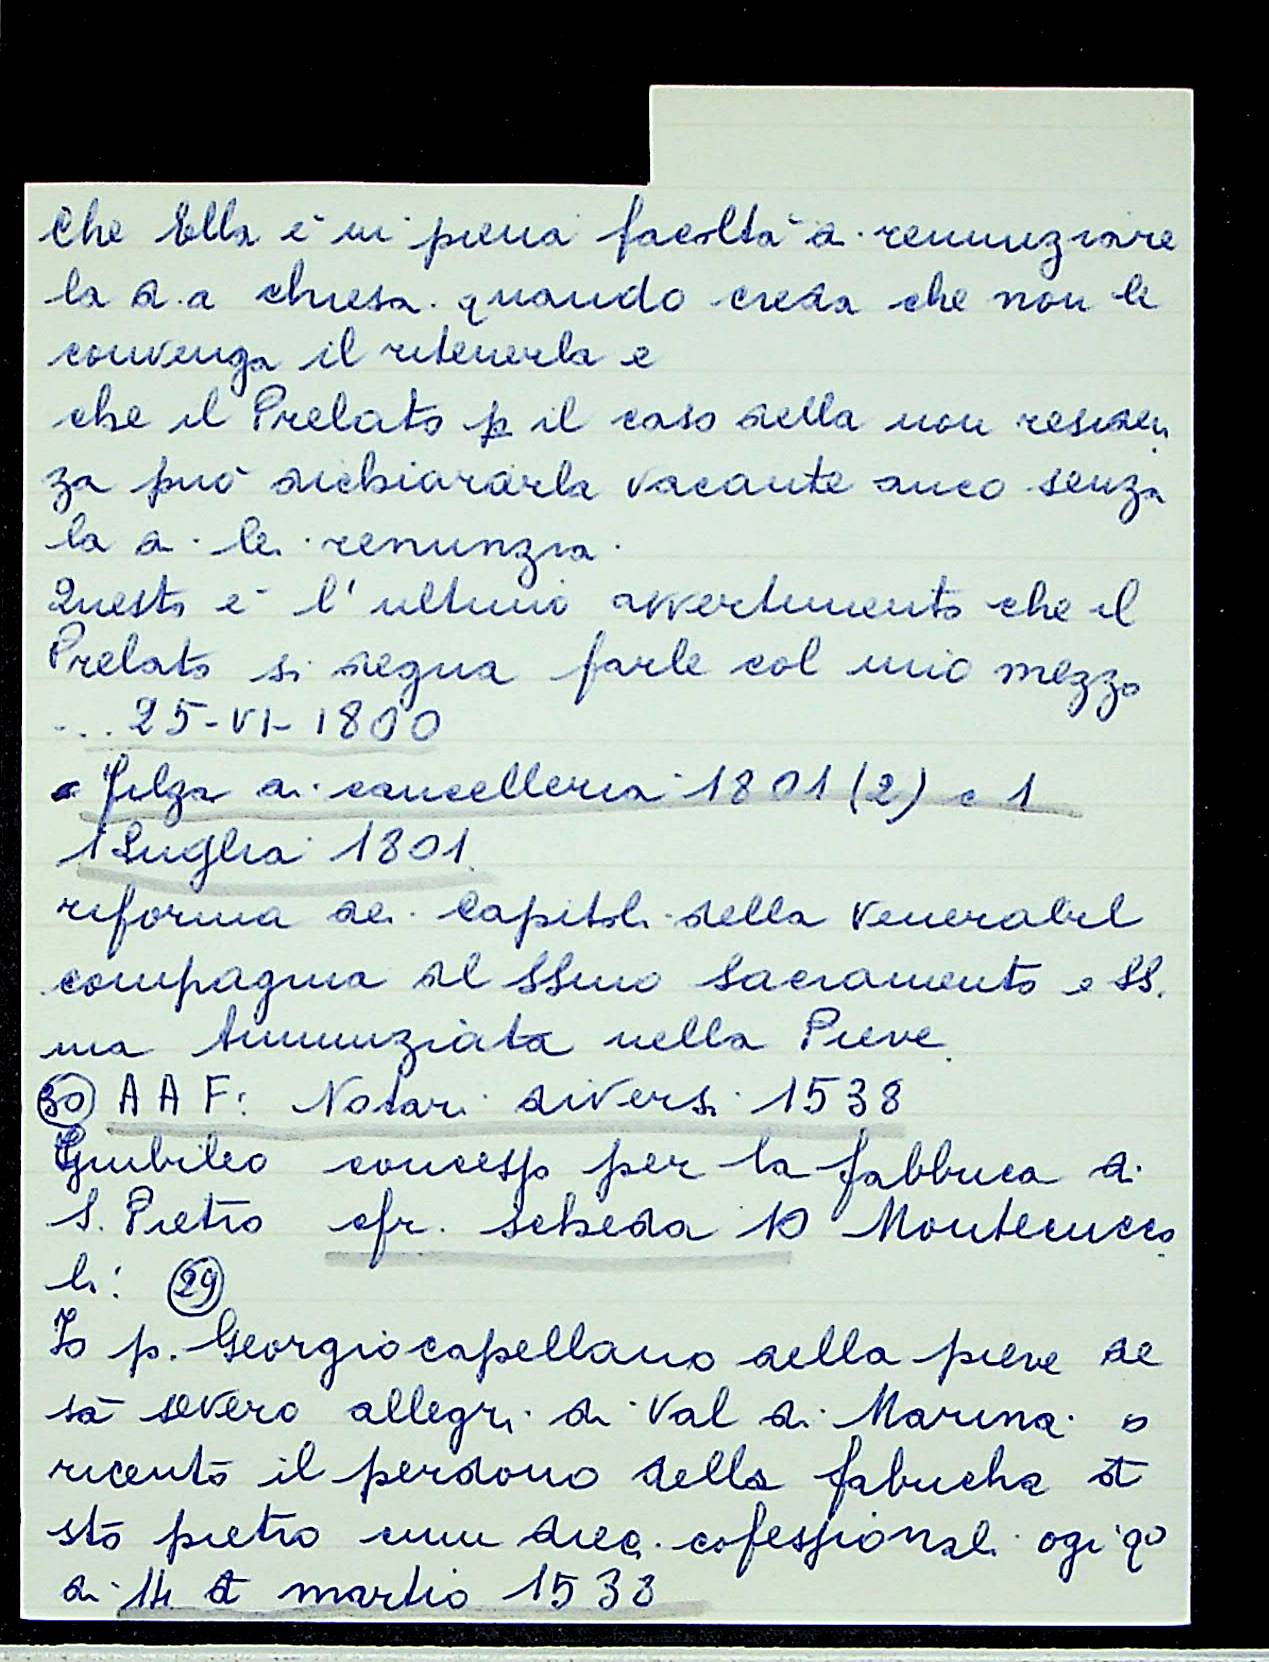 che Ella è in piena facoltà di renunziare
la d.a chiesa quando creda che non le
convenga il ritenerla e
che il Prelato p il caso della non residen
za può dichiararla vacante anco senza
la di lei renunzia.
Questo è l'ultimo avvertimento che il
Prelato si degna farle col mio mezzo
... 25-VI-1800
Filza di cancelleria 1801 (2) c 1
1 Luglio 1801
riforma dei Capitoli della Venerabil
compagnia del SSmo Sacramento e SS.
ma Annunziata nella Pieve
(30) AAF: Notari diversi 1538
Giubileo concesso per la fabbrica di
S. Pietro cfr. scheda 10 Montecucco
li: (29)
Io p. Georgio capellano della pieve de
sā severo allegri di Val di Marina o
ricēuto il perdono della fabricha d
stō pietro cum dieci cōfessionali ogi qo
di 14 d martio 1538